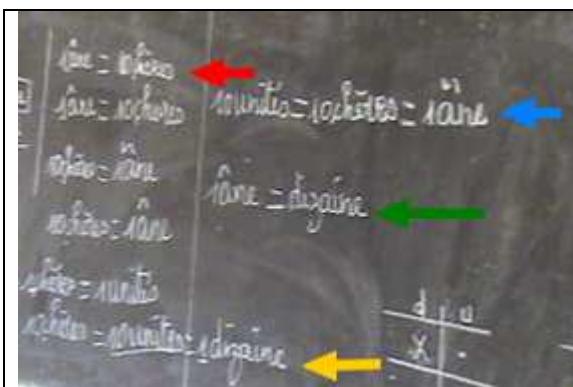 1âne = 10 chèvres
1âne = 10 chèvres
10 chèvres = 1âne
10 chèvres = 1âne
= 1 unités
10 chèvres = 10 unités = 1 dizaine
10 unités = 10 chèvres = 1 âne
1âne = dizaine
d u
X